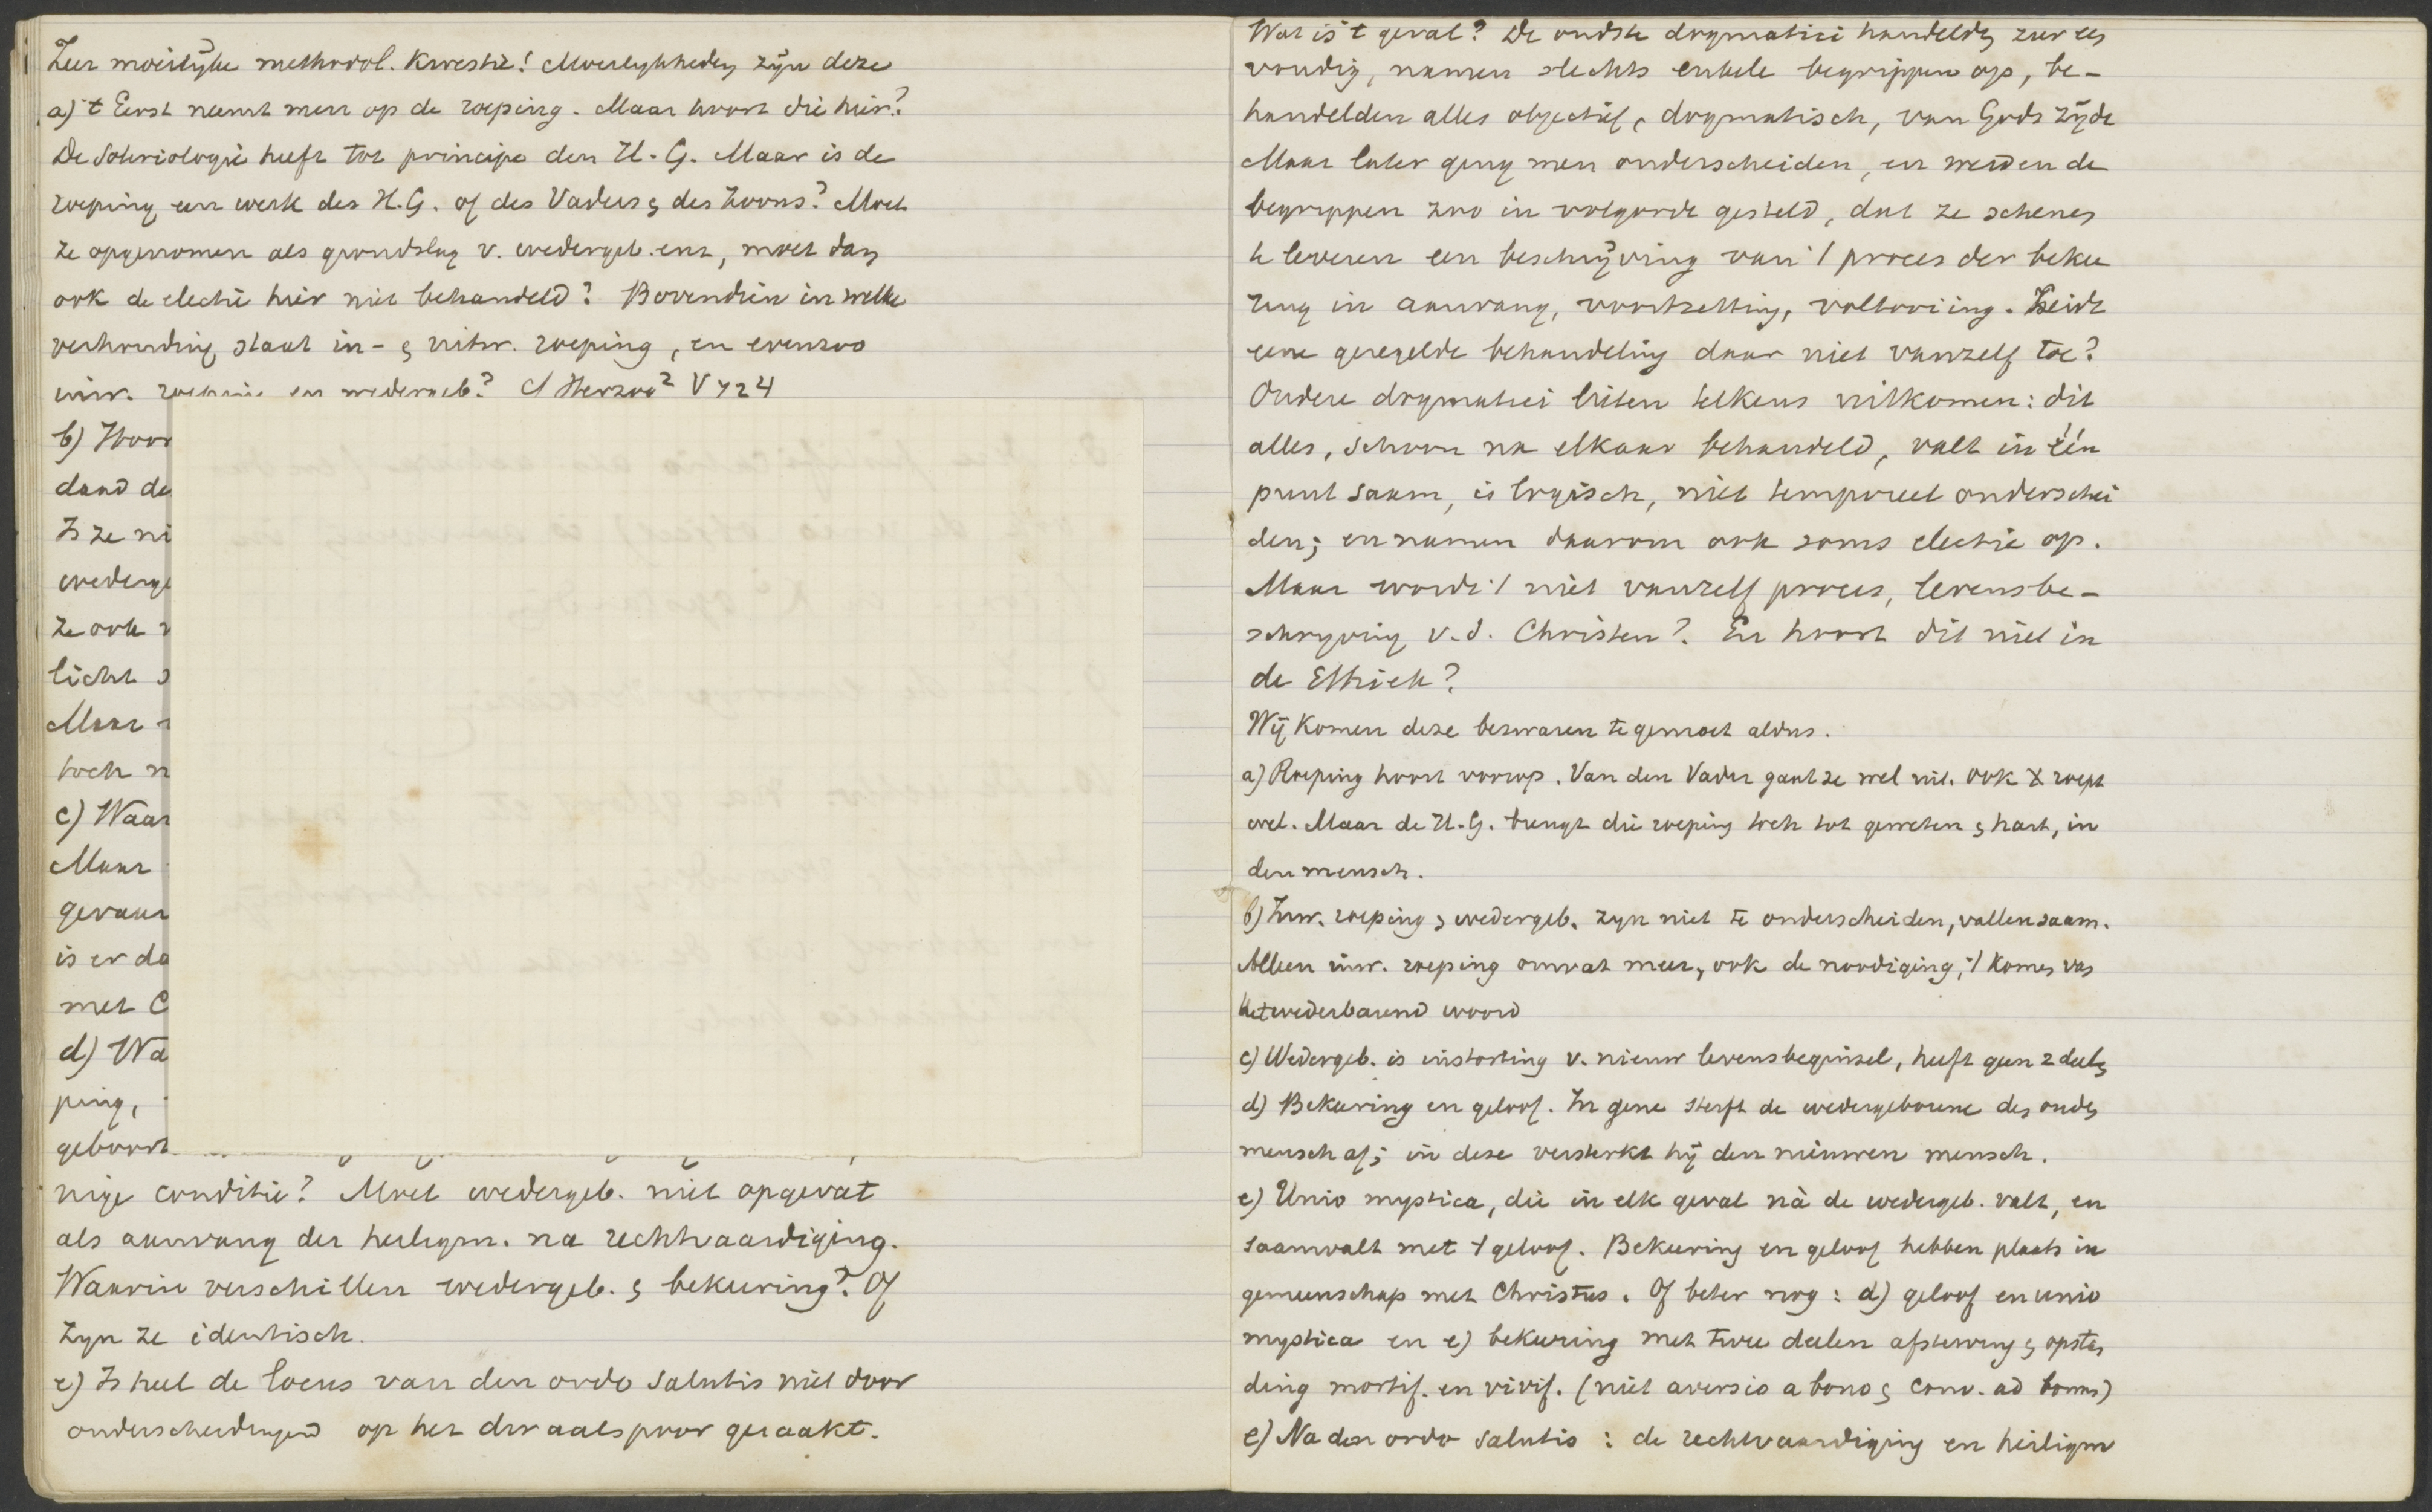 Zeer moeilijke methodol. kwestie! Moeilijkheden zijn deze
a) 't Eerst neemt men op de roeping. Maar hoort die hier?
De Soteriologie heeft tot principe den H. G. Maar is de
roeping een werk des H. G. of des Vaders & des Zoons? Moet
ze opgenomen als grondslag v. wedergeb. enz, moet dan
ook de electie hier niet behandeld? Bovendien in welke
verhouding staat in- & uitw. roeping, en evenzoo
inw. roeping en wedergeb? cf Herzog² V 724
b) Hoor
daad de
Is ze ni
wederge
ze ook
licht
Maar
toch n
c) Waar
Maar
gevaar
is er da
met C
d) Wa
ping,
geboort
nige conditie? Moet wedergeb. niet opgevat
als aanvang der heiligm. na rechtvaardiging.
Waarin verschillen wedergeb. & bekeering? Of
zyn ze identisch.
e) Is heel de locus van den ordo salutis niet door
onderscheidingen op het dwaalspoor geraakt.
Wat is 't geval? De oudste dogmatici handelden zeer een
voudig, namen slechts enkele begrippen op, be-
handelden alles objectief, dogmatisch, van Gods zijde
Maar later ging men onderscheiden, en werden de
begrippen zoo in volgorde gesteld, dat ze schenen
te leveren een beschrijving van 't proces der bekee
ring in aanvang, voortzetting, voltooiing. Leidt
eene geregelde behandeling daar niet vanzelf toe?
Oudere dogmatici lieten telkens uitkomen: dit
alles, schoon na elkaar behandeld, valt in één
punt saam, is logisch, niet temporeel onderschei
den; en namen daarom ook soms electie op.
Maar wordt 't niet vanzelf proces, levensbe-
schryving v. d. Christen? En hoort dit niet in
de Ethiek?
Wij komen deze bezwaren tegemoet aldus.
a) Roeping hoort voorop. Van den Vader gaat ze wel uit. Ook X roept
wel. Maar de H. G. brengt die roeping toch tot geweten & hart, in
den mensch.
b) Inw. roeping & wedergeb. zyn niet te onderscheiden, vallen saam.
Alleen inw. roeping omvat meer, ook de noodiging, 't komen van
het wederbarend woord
c) Wedergeb. is instorting v. nieuw levensbeginsel, heeft geen 2 deelen
d) Bekeering en geloof. In gene sterft de wedergeborene den ouden
mensch af; in deze versterkt hij den nieuwen mensch.
e) Unio mystica, die in elk geval nà de wedergeb. valt, en
saamvalt met 't geloof. Bekeering en geloof hebben plaats in
gemeenschap met Christus. Of beter nog: d) geloof en unio
mystica en e) bekeering met twee deelen afsterving & opstan
ding mortif. en vivif. (niet aversio a bono & conv. ad bonus)
e) Na den ordo salutis: de rechtvaardiging en heiligm